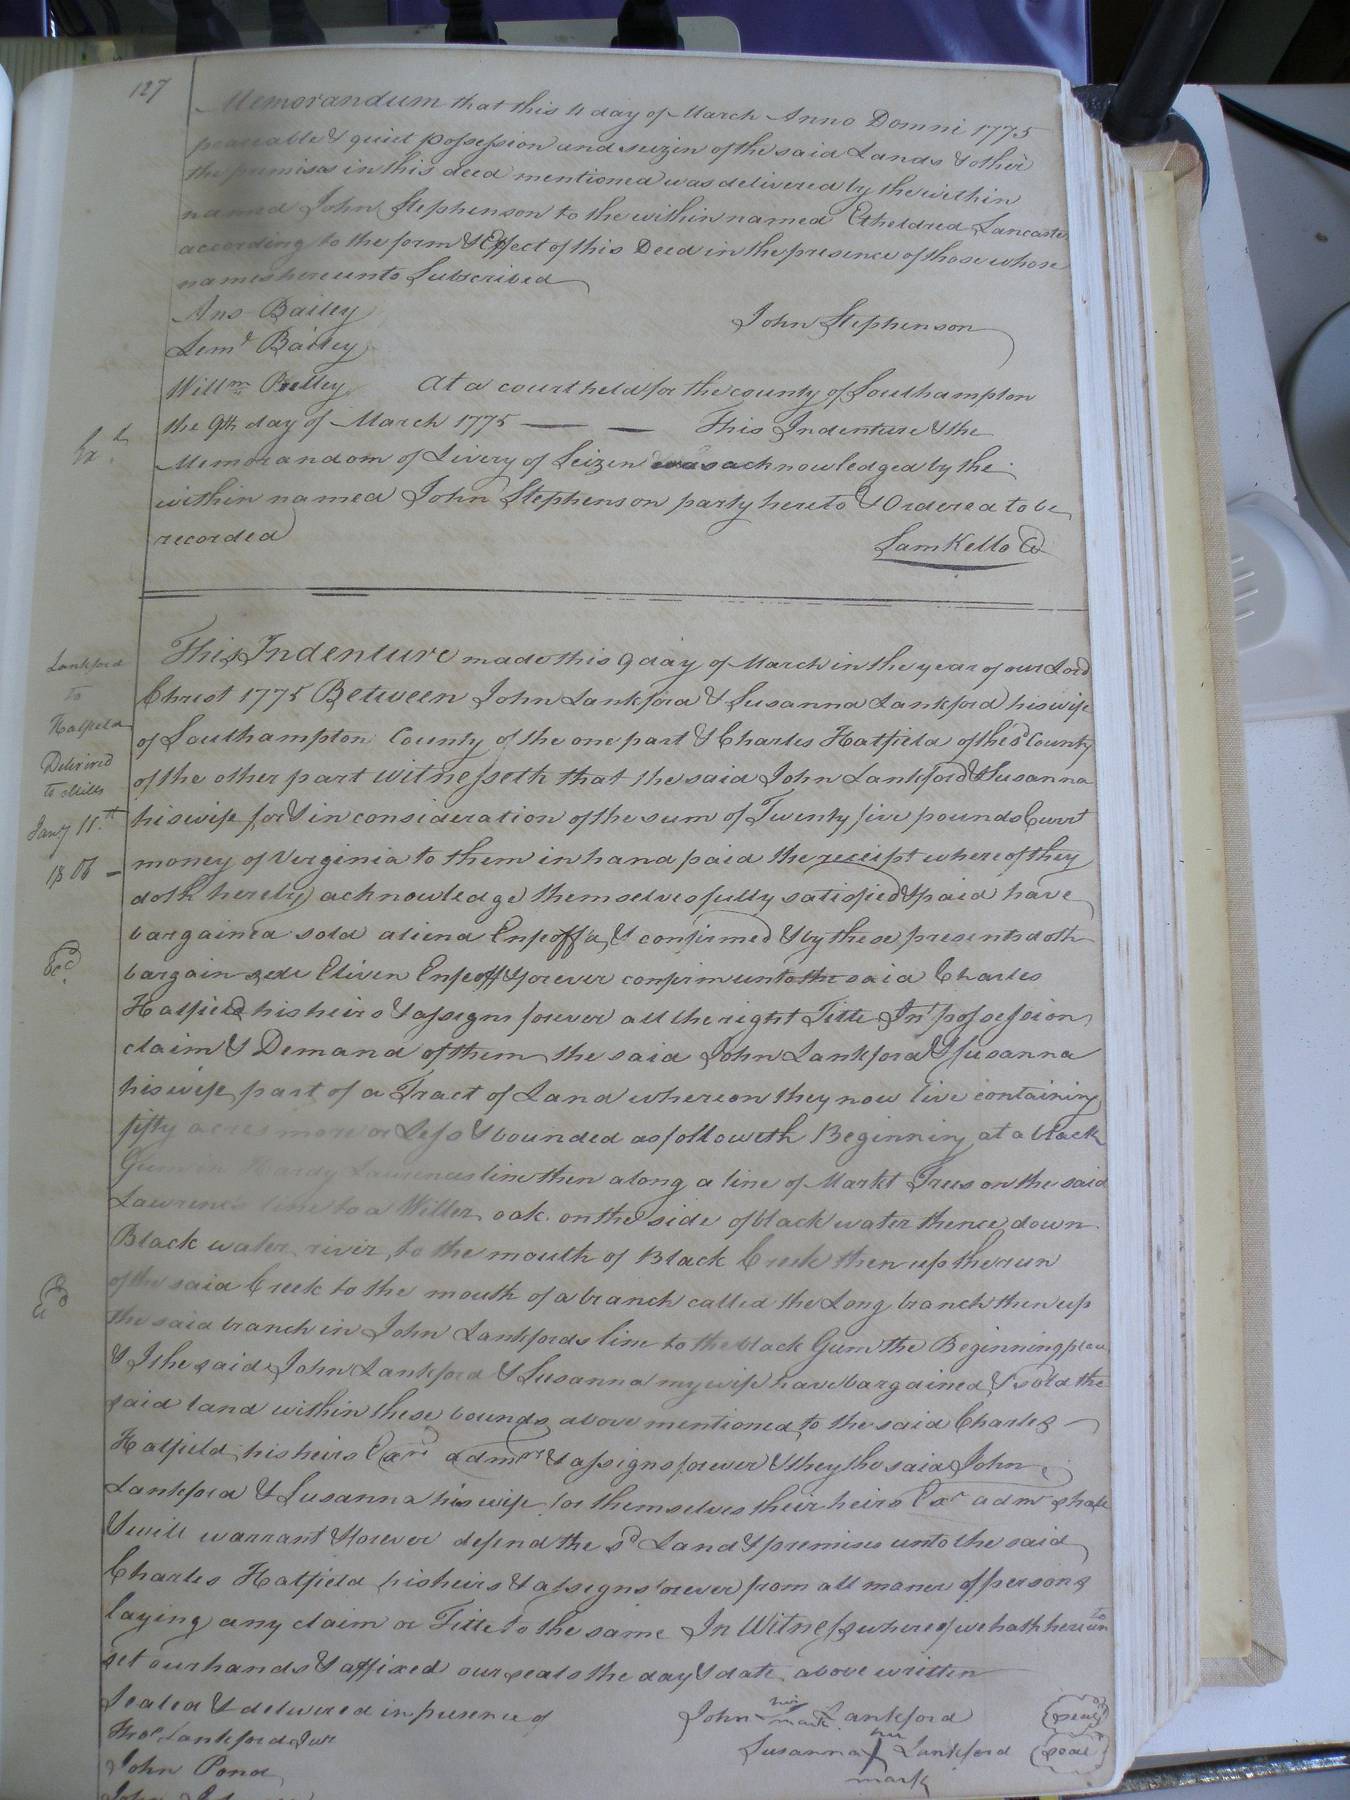 127
Memorandum that this 4 day of March Anno Domni 1775
peaceable & quiet possession and seizin of the said Lands & other
the premises in this deed mentioned was delivered by the within
named John Stephenson to the within named Etheldred Lancaster
according to the form & Effect of this Deed in the presence of those whose
names hereunto Subscribed
Ans Bailey
John Stephenson
Lemd Bailey
Willm Pretley At a court held for the county of Southampton
the 9th day of March 1775 — — This Indenture & the
Exd
Memorandom of Livery of Seizen was acknowledged by the
within named John Stephenson party hereto & Ordered to be
recorded
Sam Kello
Lankford
to
Hatfield
Delivered
to Mills
Jany 11th
1806 –
This Indenture made this 9 day of March in the year of our Lord
Christ 1775 Between John Lankford & Susanna Lankford his wife
of Southampton County of the one part & Charles Hatfield of the sd County
of the other part witnesseth that the said John Lankford & Susanna
his wife for & in consideration of the sum of Twenty five pounds Curt
money of Virginia to them in hand paid the receipt whereof they
doth hereby acknowledge themselves fully satisfied & paid have
bargained sold aliend Enfeoff'd & confirmed & by these presents doth
bargain sell Eliven Enfeoff & forever confirm unto the said Charles
Hatfield his heirs & assigns forever all the right Title Int possession
claim & Demand of them the said John Lankford & Susanna
his wife part of a Tract of Land whereon they now live containing
fifty acres more or Less & bounded as followeth Beginning at a black
Gum in Hardy Lawrences line then along a line of Markt Trees on the said
Lawrences line to a Willer oak on the side of black water thence down
Black water river to the mouth of Black Creek then up the run
of the said Creek to the mouth of a branch called the Long branch then up
the said branch in John Lankfords line to the black Gum the Beginning place
& I the said John Lankford & Susanna my wife have bargained & sold the
said land within these bounds above mentioned to the said Charles
Hatfield his heirs Exrs admrs & assigns forever & they the said John
Lankford & Susanna his wife for themselves their heirs Exr admr shall
& will warrant & forever defend the sd Land & premises unto the said
Charles Hatfield his heirs & assigns forever from all maner of persons
laying any claim or Title to the same In Witness whereof we hath hereunto
set our hands & affixed our seals the day & date above written
Sealed & delivered in presence of
John his mark Lankford (seal)
Thos Lankford Jur
Susanna her mark Lankford (seal)
John Pond
John